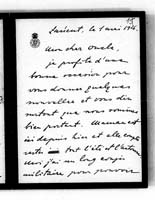 Lorient, le 1 mai 1916.
Mon cher Oncle,
je profite d'une
bonne occasion pour
vous donner quelques
nouvelles et vous dire
que nous sommes
bien portant. Maman est
ici depuis hier et elle
reste tout l'été et l'
Moi j'ai un long congé
militaire pour pouvoir